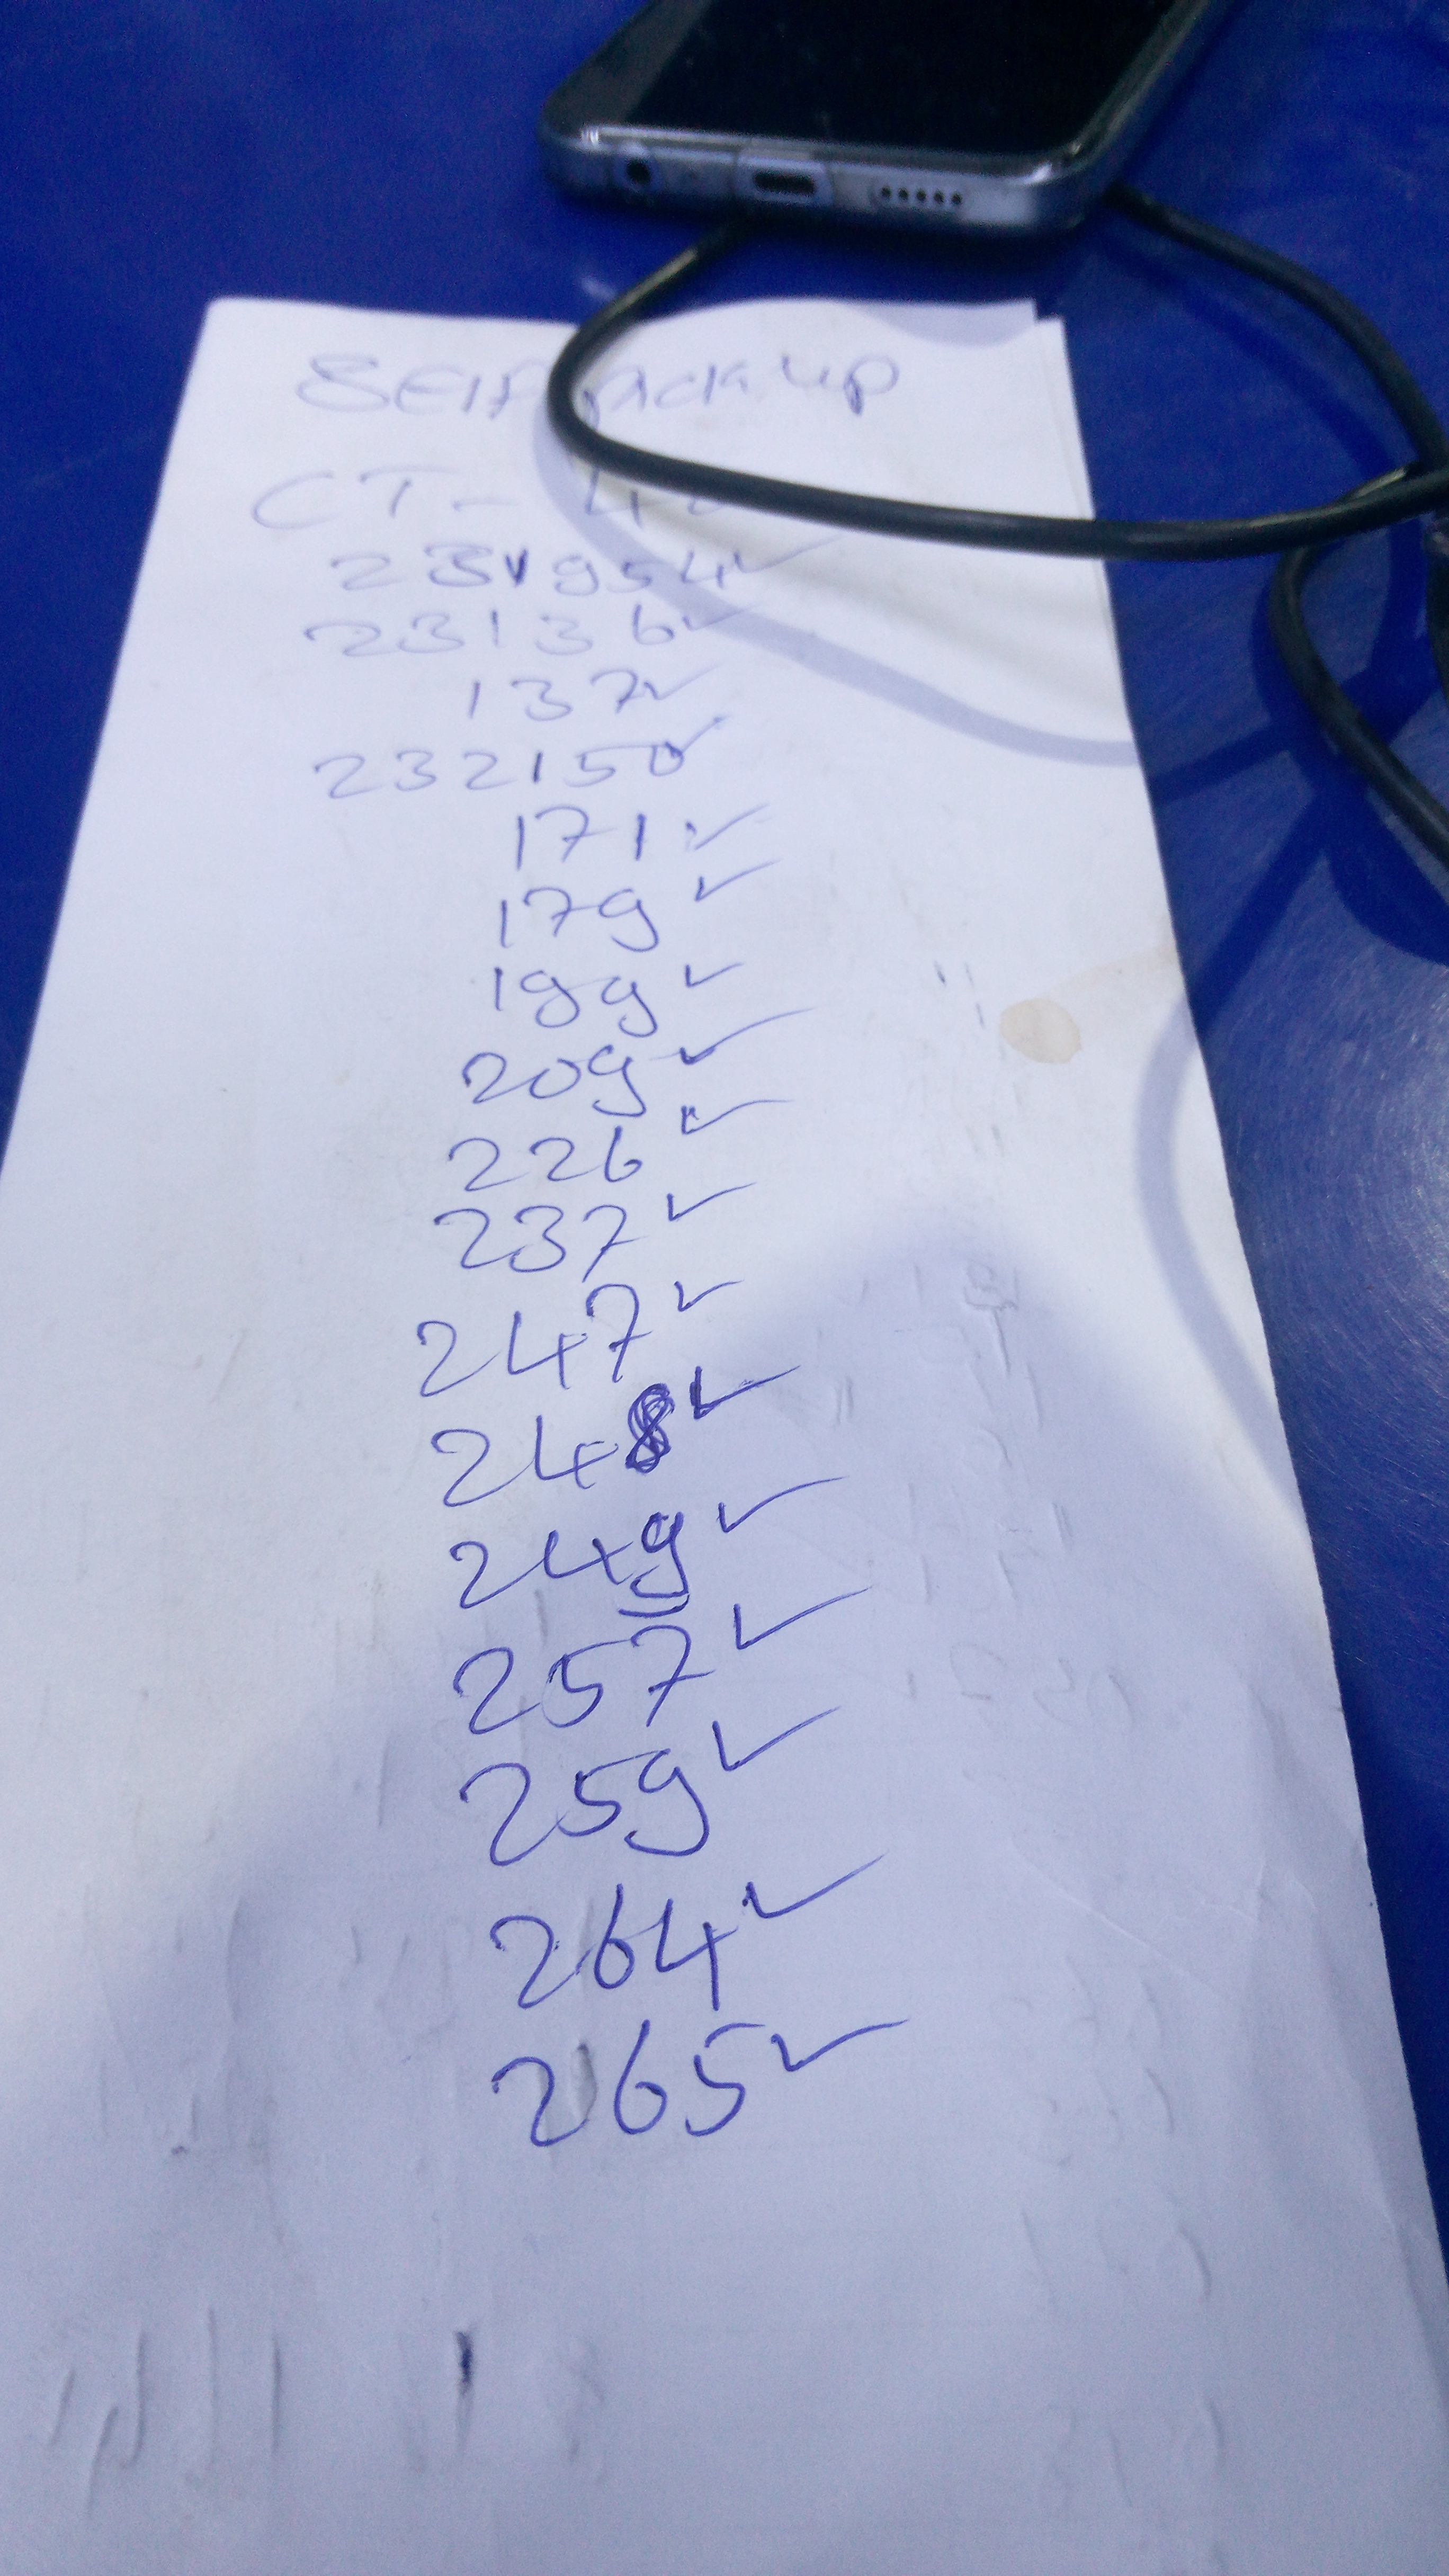 Self pick up
CT - 4
231954 ✓
23136 ✓
137 ✓
232150 ✓
171 ✓
179 ✓
199 ✓
209 ✓
226 ✓
237 ✓
247 ✓
248 ✓
249 ✓
257 ✓
259 ✓
264 ✓
265 ✓